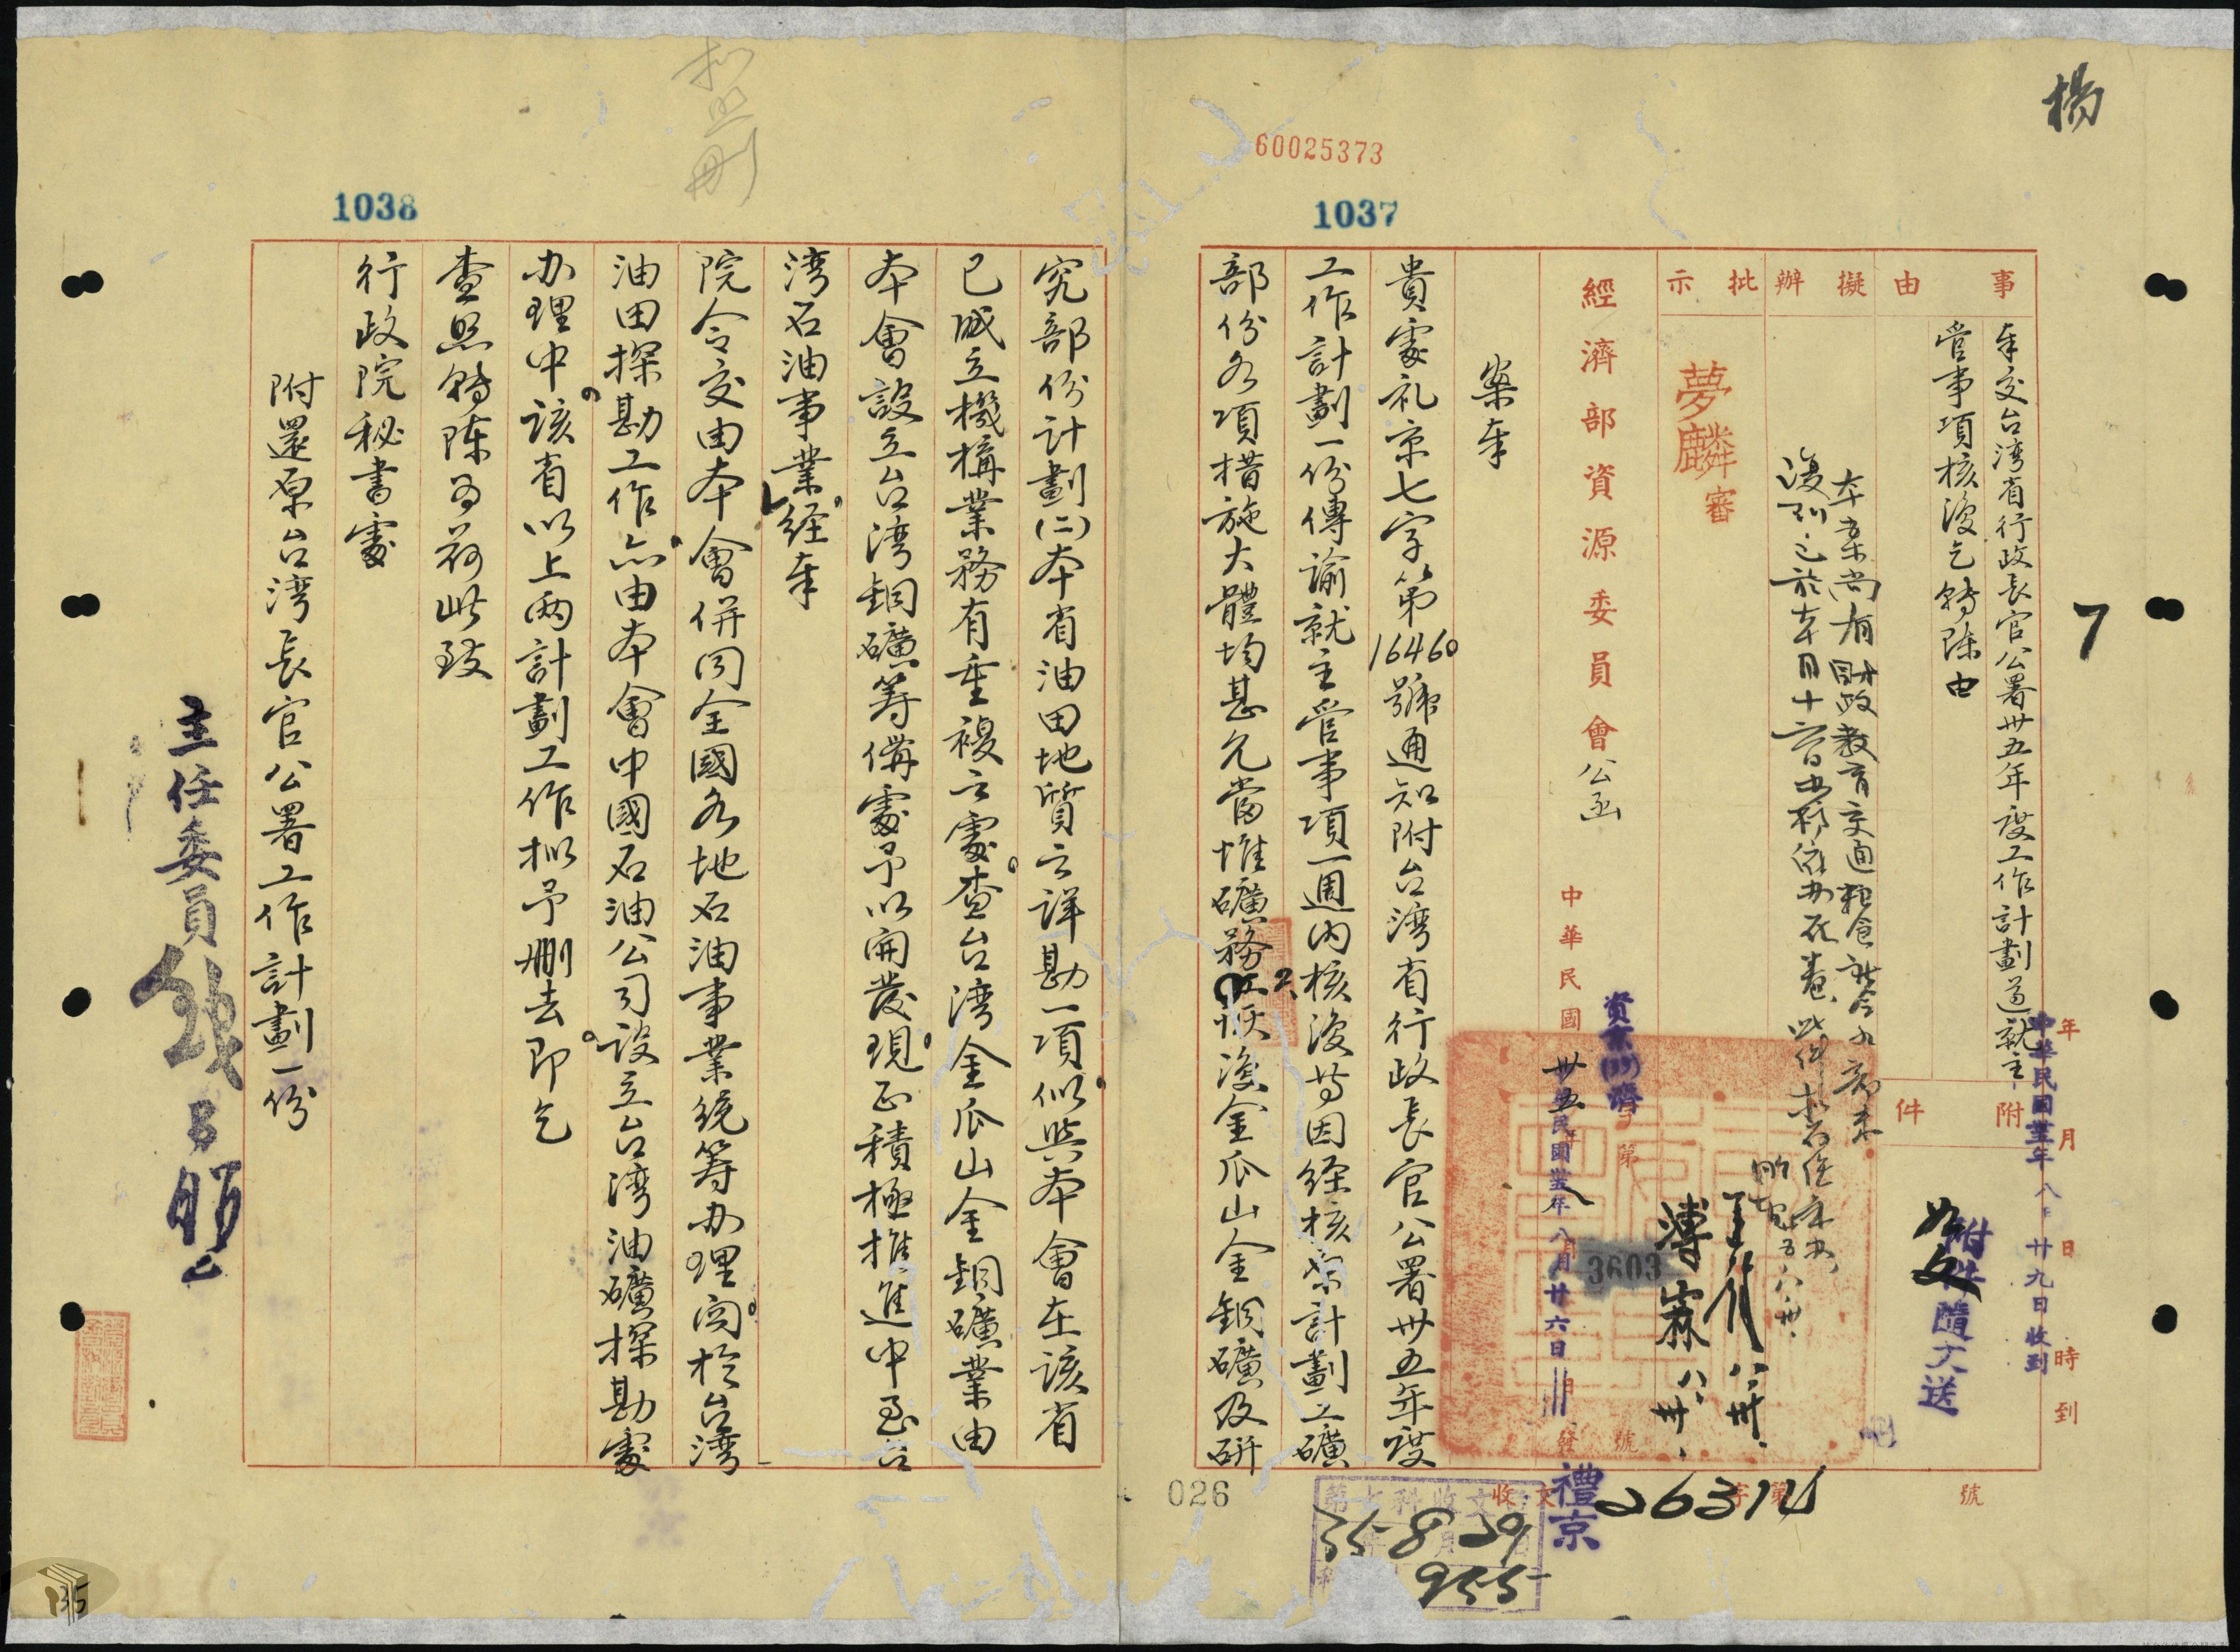 楊
60025373
1037
7
事由
奉交台湾省行政長官公署卅五年度工作計劃道就主
管事項核復乞轉陈由
附件
如文
附件隨文送
年月日時到
中華民國卅五年八月廿九日收到
擬辦
本案尚有財政教育交通粮食社会九部未
批示
夢麟審
傅霖 八、卅、
八、卅、
經濟部資源委員會公函
中華民國
卅五
年八月廿六日
資京(35)礦
字第
3603
號
發
案奉
貴處礼京七字第16460號通知附台湾省行政長官公署卅五年度
工作計劃一份傳諭就主管事項一週內核復等因経核原計劃工礦
部份各項措施大體均甚允當惟礦務2.恢復金瓜山金銅礦及研
究部份计劃(二)本省油田地質之詳勘一項似與本會在該省
已成立機構業務有重複之處。查台湾金瓜山金銅礦業由
本會設立台湾銅礦筹備處予以開發現正積極推進中至台
湾石油事業経奉
院令交由本會併同全國各地石油事業統筹办理関於台湾
油田探勘工作亦由本會中國石油公司設立台湾油礦探勘處
办理中。該省以上兩計劃工作拟予刪去。即乞
查照轉陈為荷此致
行政院秘書處
附還原台湾長官公署工作計劃一份
主任委員錢昌照
1038
拟照刪
收文
禮京
字第
26314
號
第七科收文
35-8-29
955
026
135